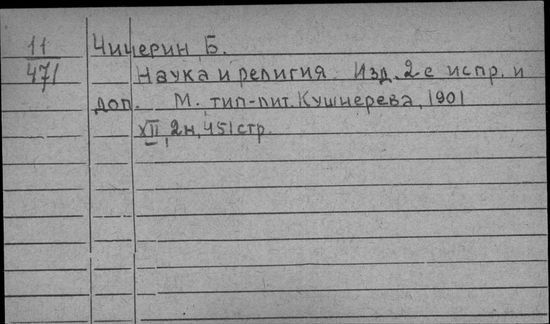 11 Чичерин, Б.
471 Наука и религия. Изд. 2-е испр. и
доп. М. тип-лит. Кушнерева, 1901
XII, 2н, 451 стр.